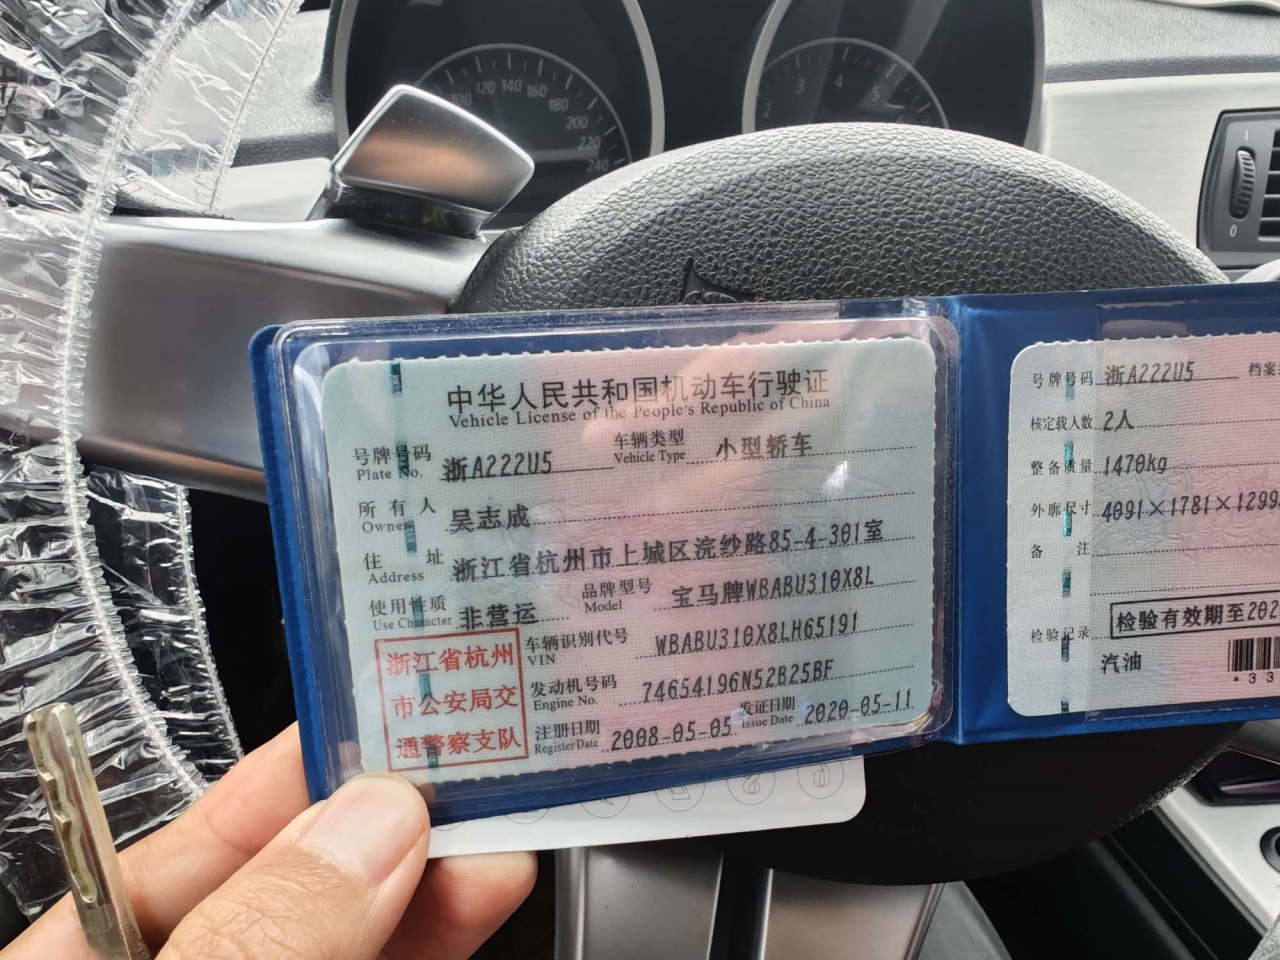 100 120 140 160 180 200 220 240
2 3 4 5
0
中华人民共和国机动车行驶证
Vehicle License of the People's Republic of China
号牌号码 Plate No. 浙A222U5 车辆类型 Vehicle Type 小型轿车
所有人 Owner 吴志成
住址 Address 浙江省杭州市上城区浣纱路85-4-301室
使用性质 Use Character 非营运 品牌型号 Model 宝马牌WBABU310X8L
车辆识别代号 VIN WBABU310X8LH65191
发动机号码 Engine No. 74654196N52B25BF
注册日期 Register Date 2008-05-05 发证日期 Issue Date 2020-05-11
浙江省杭州
市公安局交
通警察支队
号牌号码 浙A222U5 档案
核定载人数 2人
整备质量 1470kg
外廓尺寸 4091×1781×1299
备注
检验记录 检验有效期至202
汽油
*33